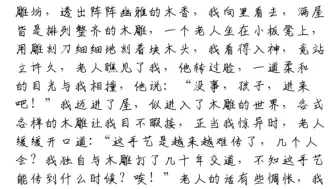 雕坊，透出阵阵幽雅的木香，我向里看去，满屋
皆是排列整齐的木雕，一个老人坐在小板凳上，
用雕刻刀细细地刻着块木头，我看得入神，竟站
立许久，老人瞧见了我，他转过脸，一道柔和
的目光与我相撞，他说：“没事，孩子，进来
吧！”我迈进了屋，似进入了木雕的世界，各式
各样的木雕让我目不暇接，正当我惊异时，老人
缓缓开口道：“这手艺是越来越难传了，几个人
会？我独自与木雕打了几十年交道，不知这手艺
能传到什么时候？唉！”老人的话有些惆怅，我